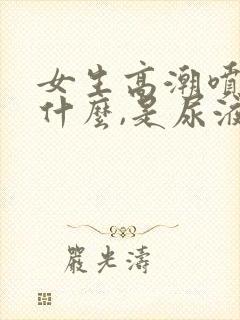 女生高潮噴
什麼,是尿液
嚴光濤